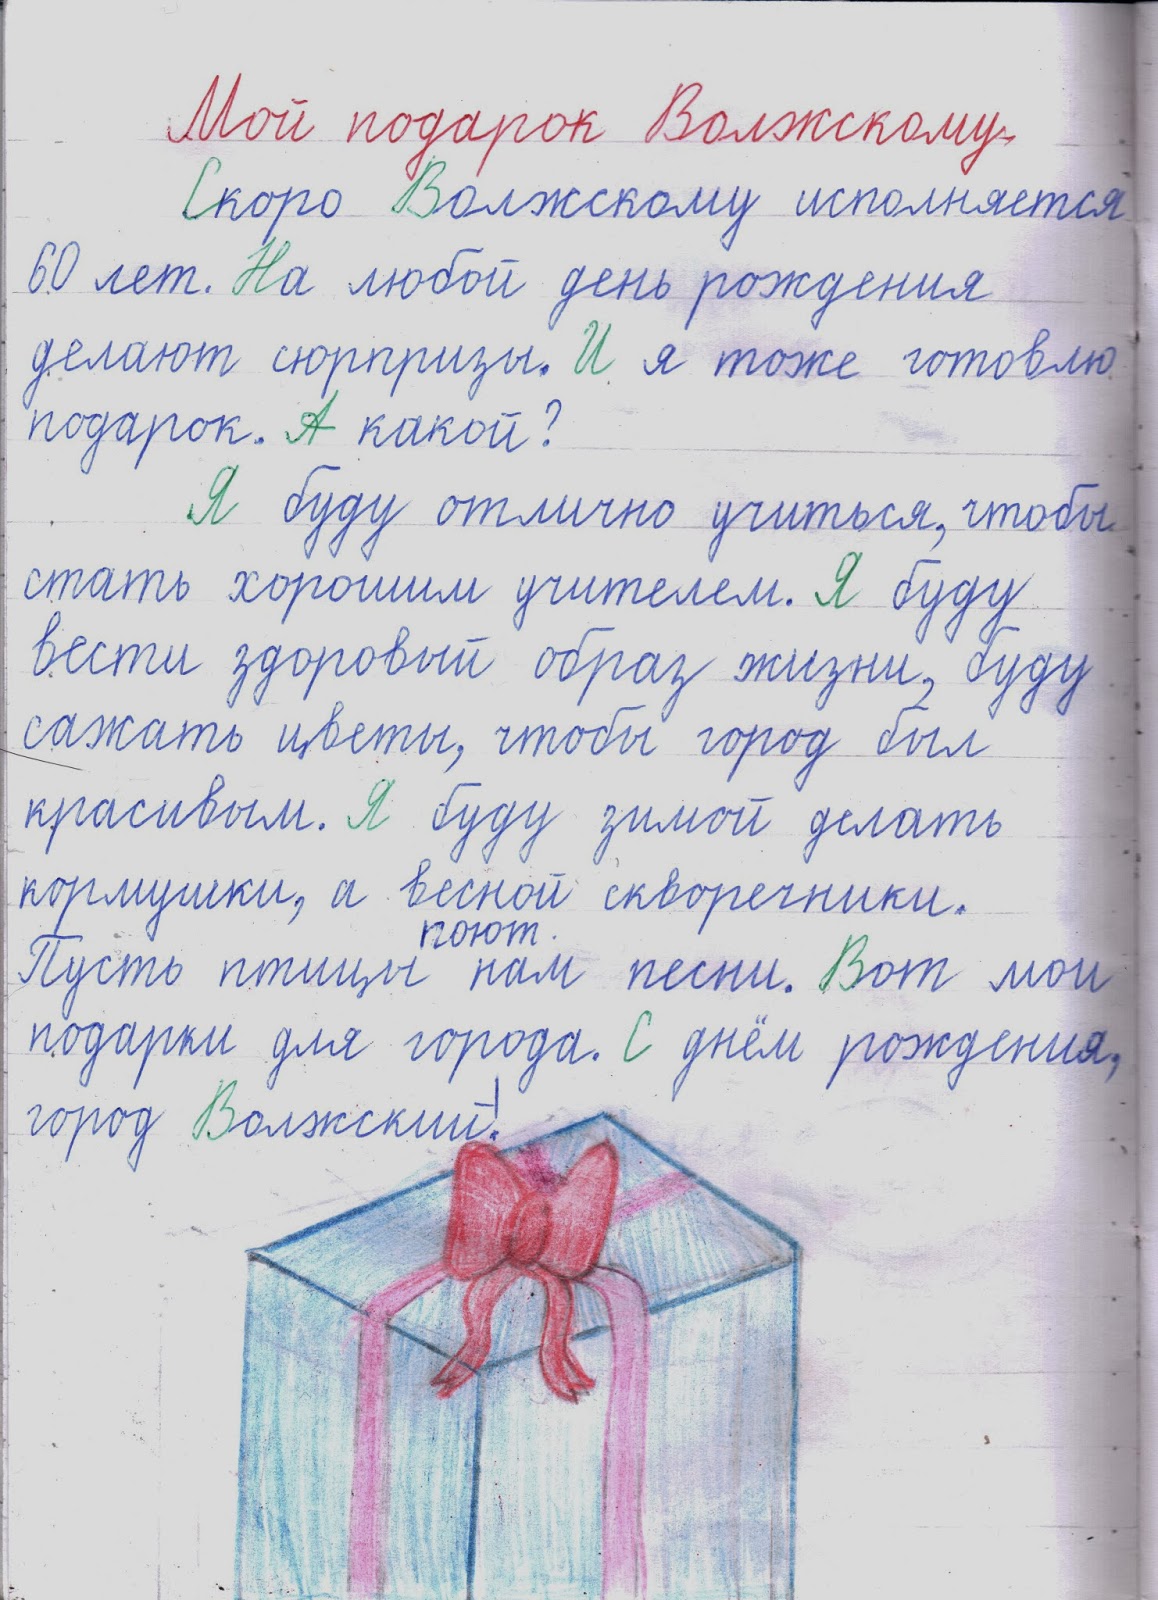 Мой подарок Волжскому.
Скоро Волжскому исполняется
60 лет. На любой день рождения
делают сюрпризы. И я тоже готовлю
подарок. А какой?
Я буду отлично учиться, чтобы
стать хорошим учителем. Я буду
вести здоровый образ жизни, буду
сажать цветы, чтобы город был
красивым. Я буду зимой делать
кормушки, а весной скворечники.
поют.
Пусть птицы нам песни. Вот мои
подарки для города. С днём рождения,
город Волжский!